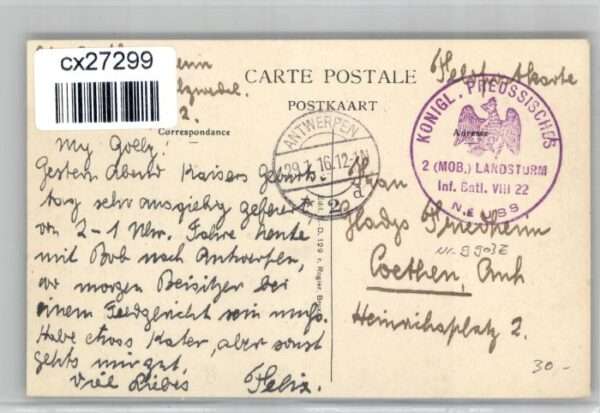 cx27299
CARTE POSTALE
POSTKAART
Feldpostkarte
Correspondance
Adresse
ANTWERPEN
29.1.16.12-1N
* 2 d
KÖNIGL. PREUSSISCHES
2 (MOB.) LANDSTURM
Inf. Batl. VIII 22
NEUSS
My Golly!
Gestern Abend Kaisers Geburts-
tag sehr ausgiebig gefeiert
von 2-1 Uhr. Fahre heute
mit Bob nach Antwerpen,
wo morgen Beisitzer bei
einem Feldgericht sein muß.
Habe etwas Kater, aber sonst
gehts mir gut.
Viel Liebes Felix.
Frau
Gladys Friedheim
Nr. 9903E
Coethen, Anh
Heinrichsplatz 2.
30.-